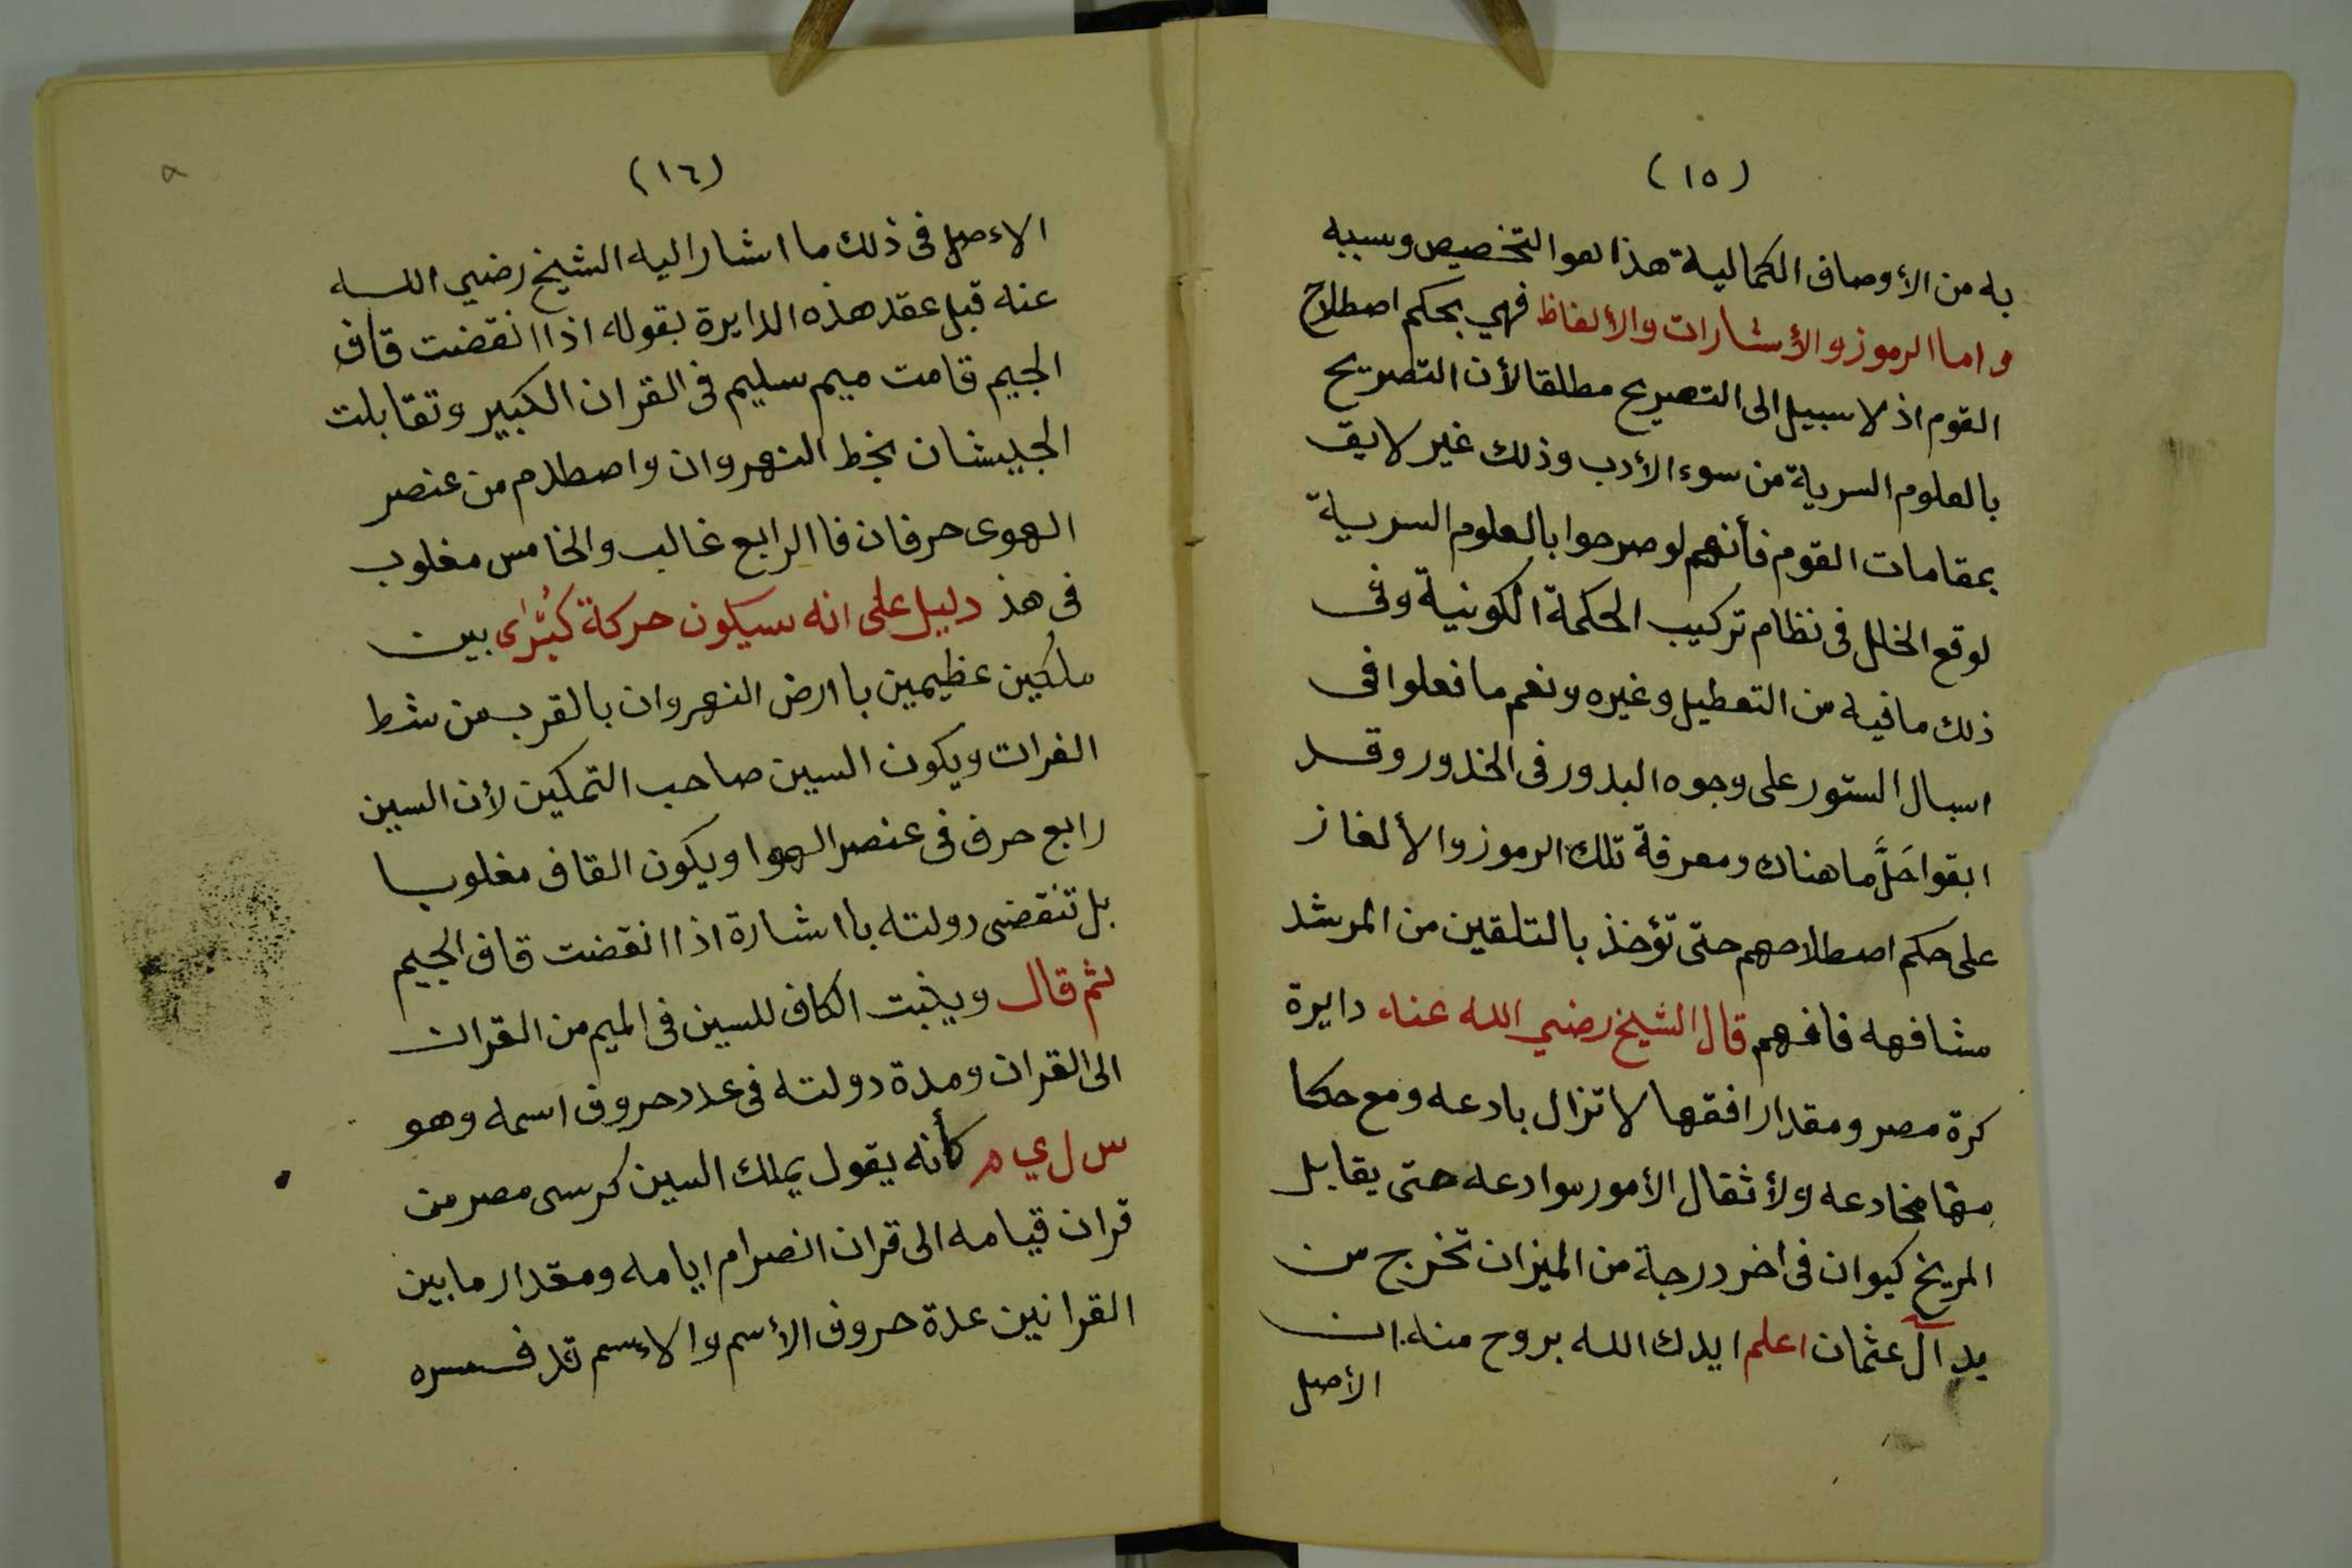 (١٥)
به من الأوصاف الكمالية هذا هو التخصيص وسببه
واما الرموز والأشارات والألغاظ فهي بحكم اصطلاح
القوم اذ لا سبيل الى التصريح مطلقا لأن التصريح
بالعلوم السرية من سوء الأدب وذلك غير لايق
بمقامات القوم فأنهم لو صرحوا بالعلوم السرية
لوقع الخلل فى نظام تركيب الحكمة الكونية وفى
ذلك ما فيه من التعطيل وغيره ونعم ما فعلوا فى
اسبال الستور على وجوه البدور فى الخدور وقد
ابقوا حَلَّ ما هناك ومعرفة تلك الرموز والألغاز
على حكم اصطلاحهم حتى تؤخذ بالتلقين من المرشد
مشافهه فافهم قال الشيخ رضي الله عنه دايرة
كرة مصر ومقدار افقها لا تزال بادعه ومع حكا
مخادعه ولأثقال الأمور وادعه حتى يقابل
المريخ كيوان فى اخر درجة من الميزان تخرج من
يد آل عثمان اعلم ايدك الله بروح منه ان
الأصل
(١٦)
الاءصل فى ذلك ما اشار اليه الشيخ رضي الله
عنه قبل عقد هذه الدايرة بقوله اذا انقضت قاف
الجيم قامت ميم سليم فى القران الكبير وتقابلت
الجيشان بخط النهروان واصطلام من عنصر
الهوى حرفان فاالرابع غالب والخامس مغلوب
فى هذ دليل على انه سيكون حركة كبُرٰى بين
ملكين عظيمين باارض النهروان بالقرب من شط
الفرات ويكون السين صاحب التمكين لأن السين
رابع حرف فى عنصر الهوا ويكون القاف مغلوبا
بل تنقضى دولته بااشارة اذا انقضت قاف الجيم
ثم قال ويثبت الكاف للسين فى الميم من القران
الى القران ومدة دولته فى عدد حروف اسمه وهو
س ل ي م كأنه يقول يملك السين كرسى مصر من
قران قيامه الى قران انصرام ايامه ومقدار ما بين
القرانين عدة حروف الأسم والاءسم قد فسره